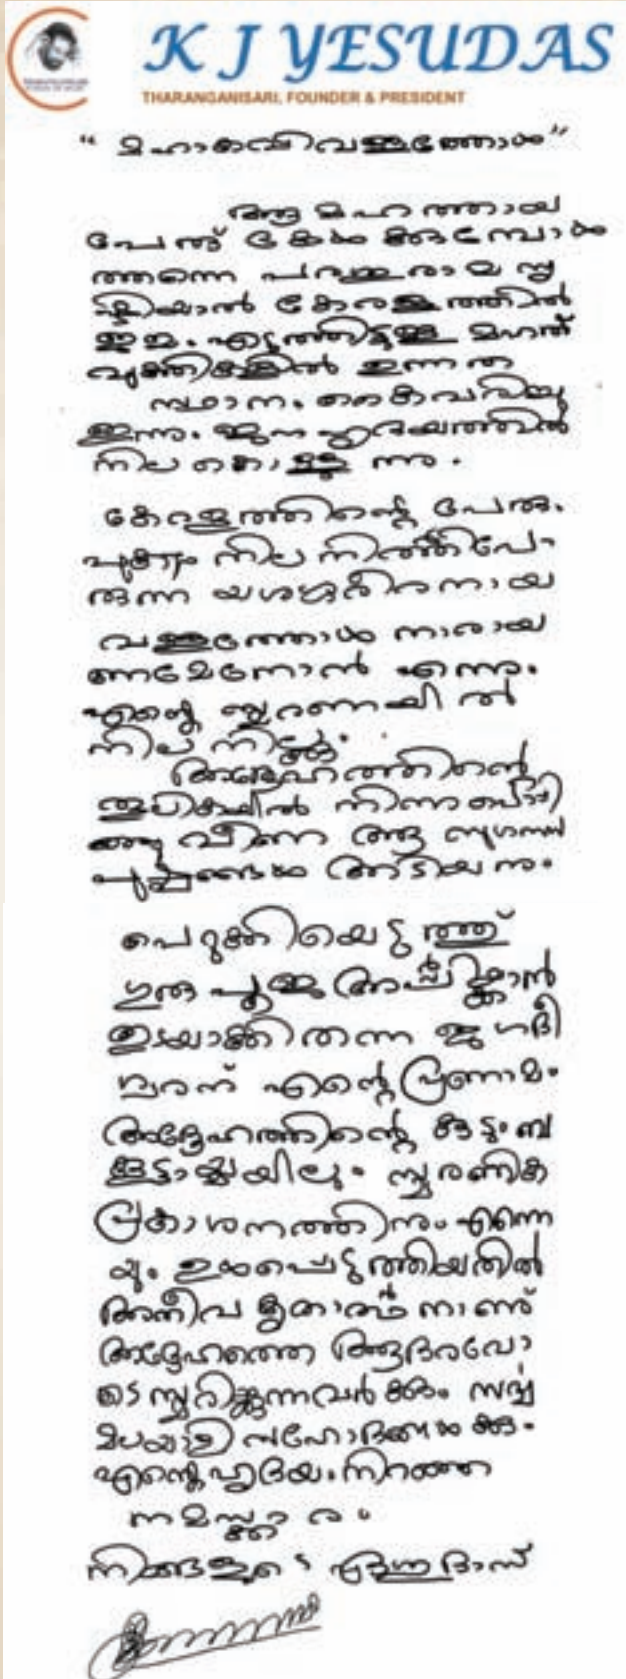 K J YESUDAS
THARANGANISARI, FOUNDER & PRESIDENT
“മഹാകവിവള്ളത്തോൾ”
ആ മഹത്തായ
പേരു് കേൾക്കുമ്പോൾ
ത്തന്നെ പരശുരാമ സൃ
ഷ്ടിയാൽ കേരളത്തിൽ
ജന്മം എടുത്തിട്ടുള്ള മഹത്
വ്യക്തികളിൽ ഉന്നത
സ്ഥാനം കൈവരിച്ചു
ഇന്നും ജനഹൃദയത്തിൽ
നിലകൊള്ളുന്നു.
കേരളത്തിന്റെ പേരും
പുകഴും നിലനിർത്തിപോ
രുന്ന യശശ്ശരീരനായ
വള്ളത്തോൾ നാരായ
ണമേനോൻ എന്നും
എന്റെ സ്മരണയിൽ
നില നില്ക്കും
അദ്ദേഹത്തിന്റെ
തൂലികയിൽ നിന്നു പൊഴി
ഞ്ഞു വീണ ആ സുഗന്ധ
പുഷ്പങ്ങൾ അടിയനും
പെറുക്കിയെടുത്ത്
ഗുരുപൂജ അർപ്പിക്കാൻ
ഇടയാക്കിതന്ന ജഗദീ
ശ്വരന് എന്റെ പ്രണാമം
അദ്ദേഹത്തിന്റെ കുടുംബ
കൂട്ടായ്മയിലും സ്മരണിക
പ്രകാശനത്തിനും എന്നെ
യും ഉൾപ്പെടുത്തിയതിൽ
അതീവ കൃതാർത്ഥനാണു്
അദ്ദേഹത്തെ ആദരവോ
ടെ സ്മരിക്കുന്നവർക്കും സർവ്വ
മലയാളി സഹോദരങ്ങൾക്കും
എന്റെ ഹൃദയം നിറഞ്ഞ
നമസ്ക്കാരം
നിങ്ങളുടെ യേശുദാസ്